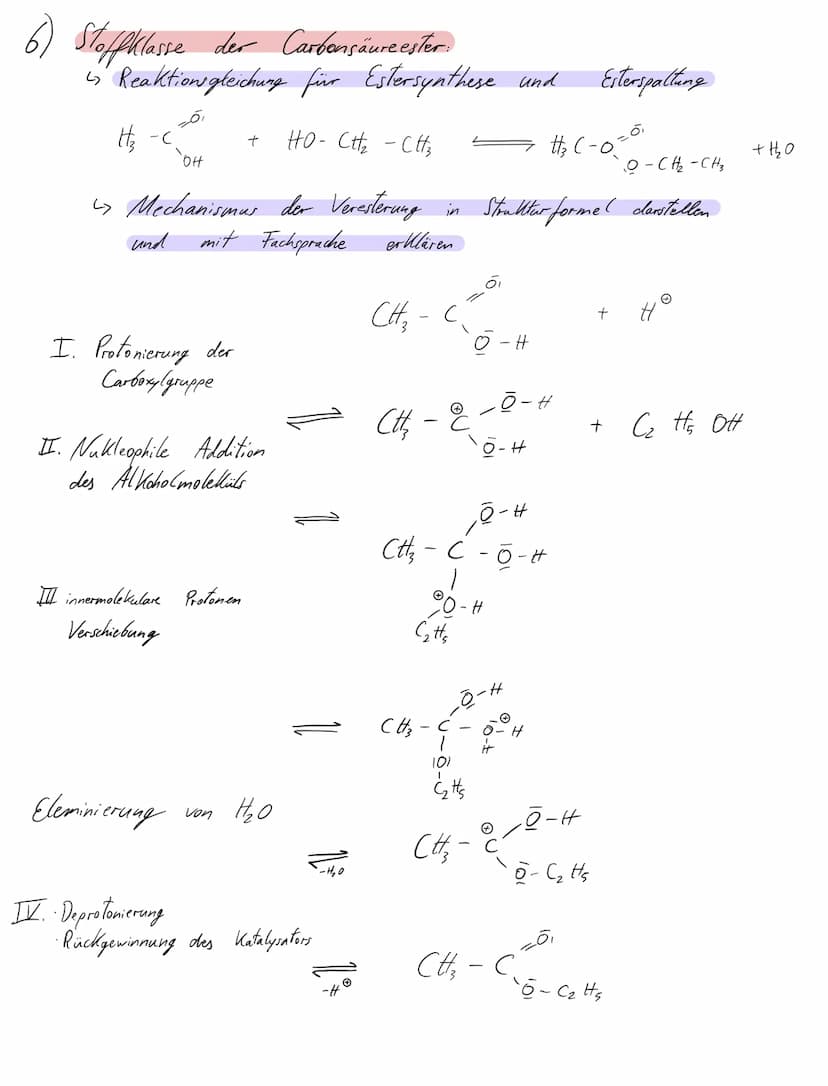 6) Stoffklasse der Carbonsäureester:
↳ Reaktionsgleichung für Estersynthese und Esterspaltung
H₃ - C = O - OH + HO - CH₂ - CH₃ ⇌ H₃ C - O = O - O - CH₂ - CH₃ + H₂O
↳ Mechanismus der Veresterung in Strukturformel darstellen
und mit Fachsprache erklären
CH₃ - C = O - O - H + H⊕
I. Protonierung der
Carboxylgruppe
⇌ CH₃ - C⊕ - O - H - O - H + C₂ H₅ OH
II. Nukleophile Addition
des Alkoholmoleküls
⇌ CH₃ - C - O - H - O - H - O⊕ - H C₂H₅
III innermolekulare Protonen
Verschiebung
⇌ CH₃ - C - O - H - O⊕ - H H |O| C₂H₅
Eleminierung von H₂O
⇌ -H₂O CH₃ - C⊕ - O - H - O - C₂ H₅
IV. · Deprotonierung
· Rückgewinnung des Katalysators
⇌ -H⊕ CH₃ - C = O - O - C₂ H₅